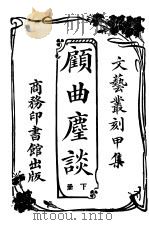 文藝叢刻甲集
顧曲麈談
下冊
商務印書館出版
mtoou.info